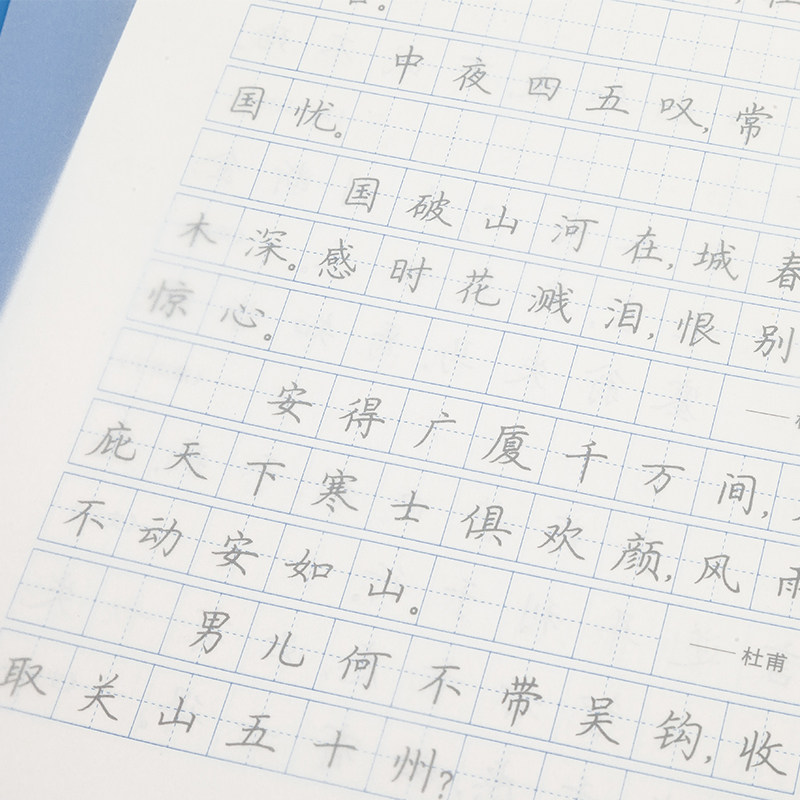 中夜四五叹，常
国忧。
国破山河在，城春
木深。感时花溅泪，恨别
惊心。
安得广厦千万间，
庇天下寒士俱欢颜，风雨
不动安如山。
——杜甫
男儿何不带吴钩，收
取关山五十州？